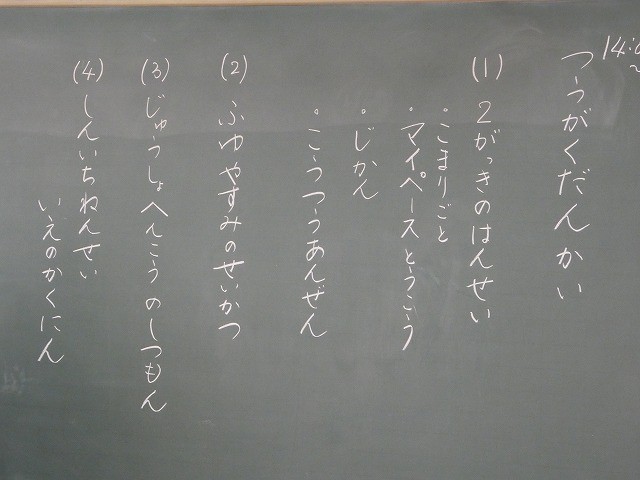 つうがくだんかい
(1) 2がっきのはんせい
・こまりごと
・マイペースとうこう
・じかん
・こうつうあんぜん
(2) ふゆやすみのせいかつ
(3) じゅうしょへんこうのしつもん
(4) しんいちねんせい
いえのかくにん